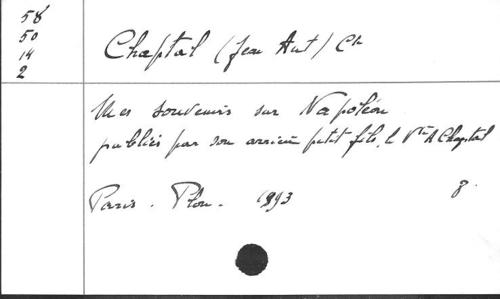 58
50
14
2
Chaptal (Jean Ant) Cte
Mes souvenirs sur Napoléon
publiés par son arrière petit fils, le Vte A Chaptal
Paris. Plon. 1893 8